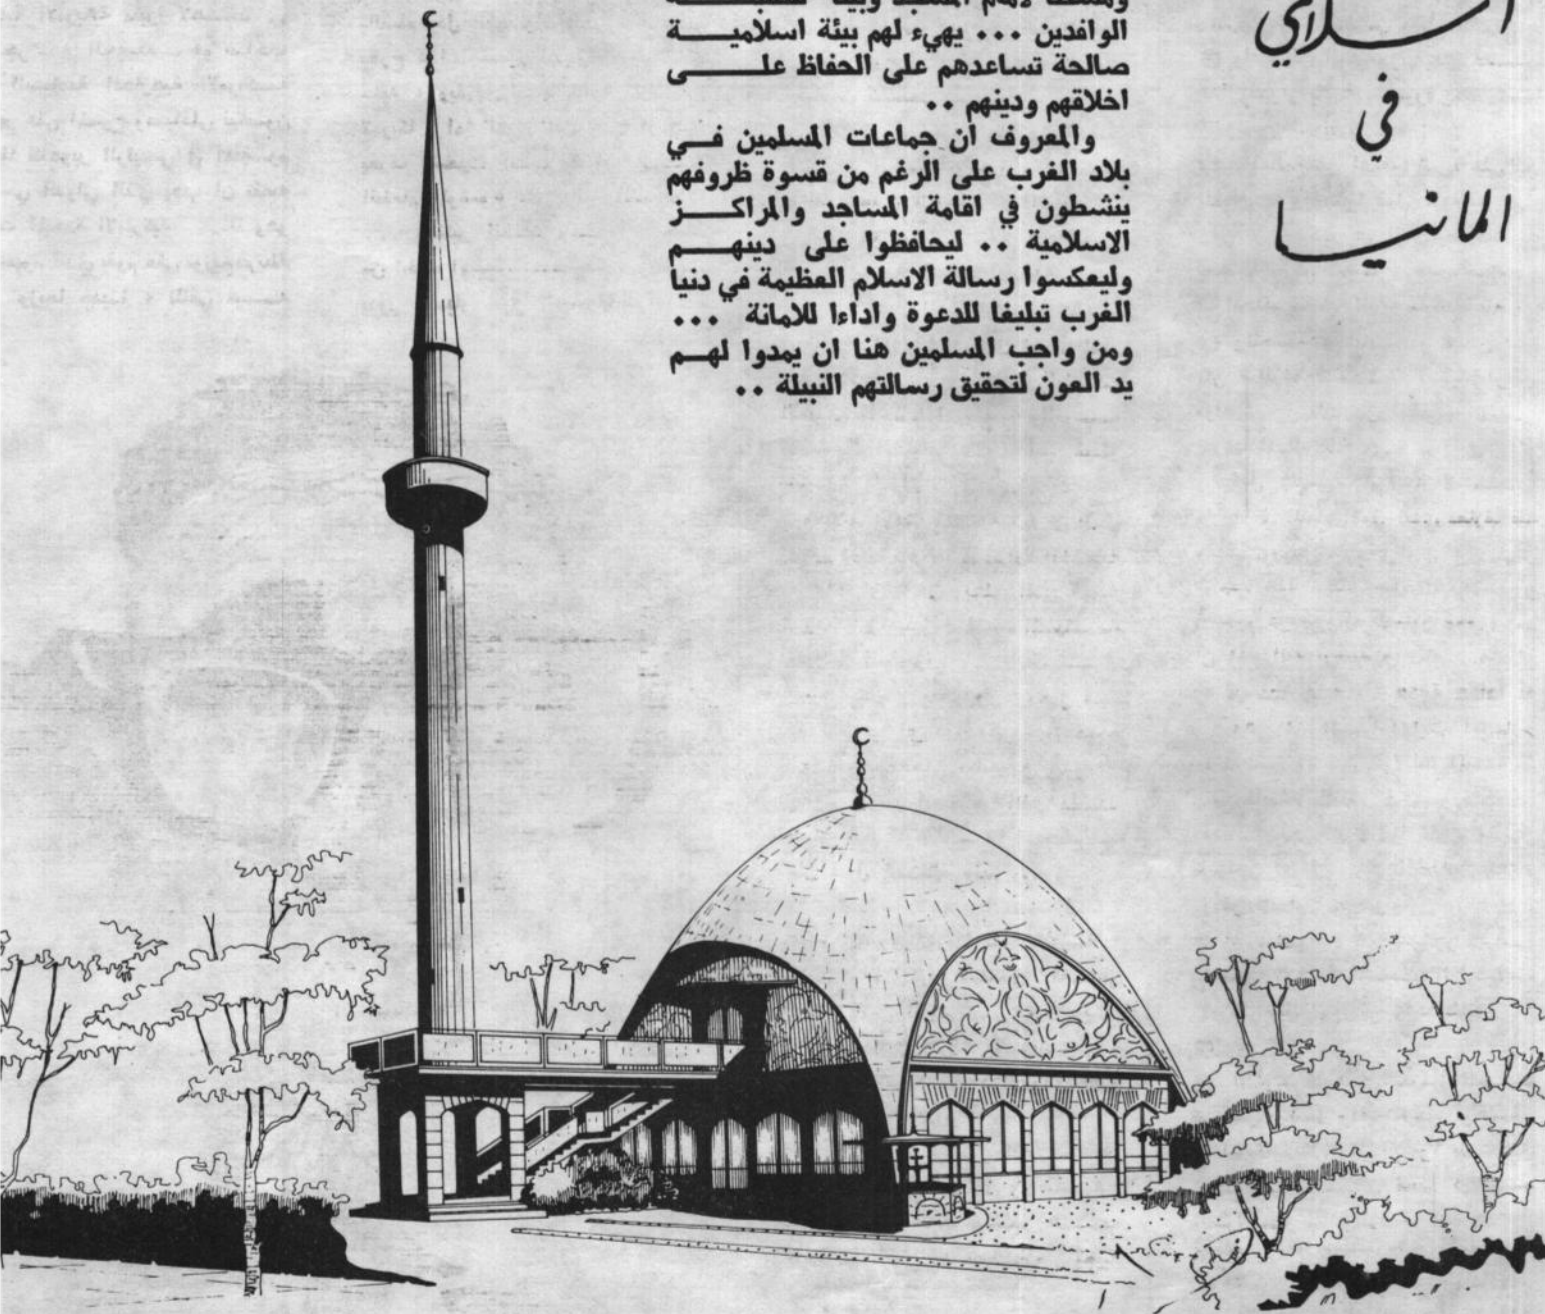 اسلامي
في
المانيا
الوافدين ... يهيء لهم بيئة اسلامية
صالحة تساعدهم على الحفاظ على
اخلاقهم ودينهم ..
والمعروف ان جماعات المسلمين في
بلاد الغرب على الرغم من قسوة ظروفهم
ينشطون في اقامة المساجد والمراكز
الاسلامية .. ليحافظوا على دينهم
وليعكسوا رسالة الاسلام العظيمة في دنيا
الغرب تبليغا للدعوة واداءا للامانة ...
ومن واجب المسلمين هنا ان يمدوا لهم
يد العون لتحقيق رسالتهم النبيلة ..